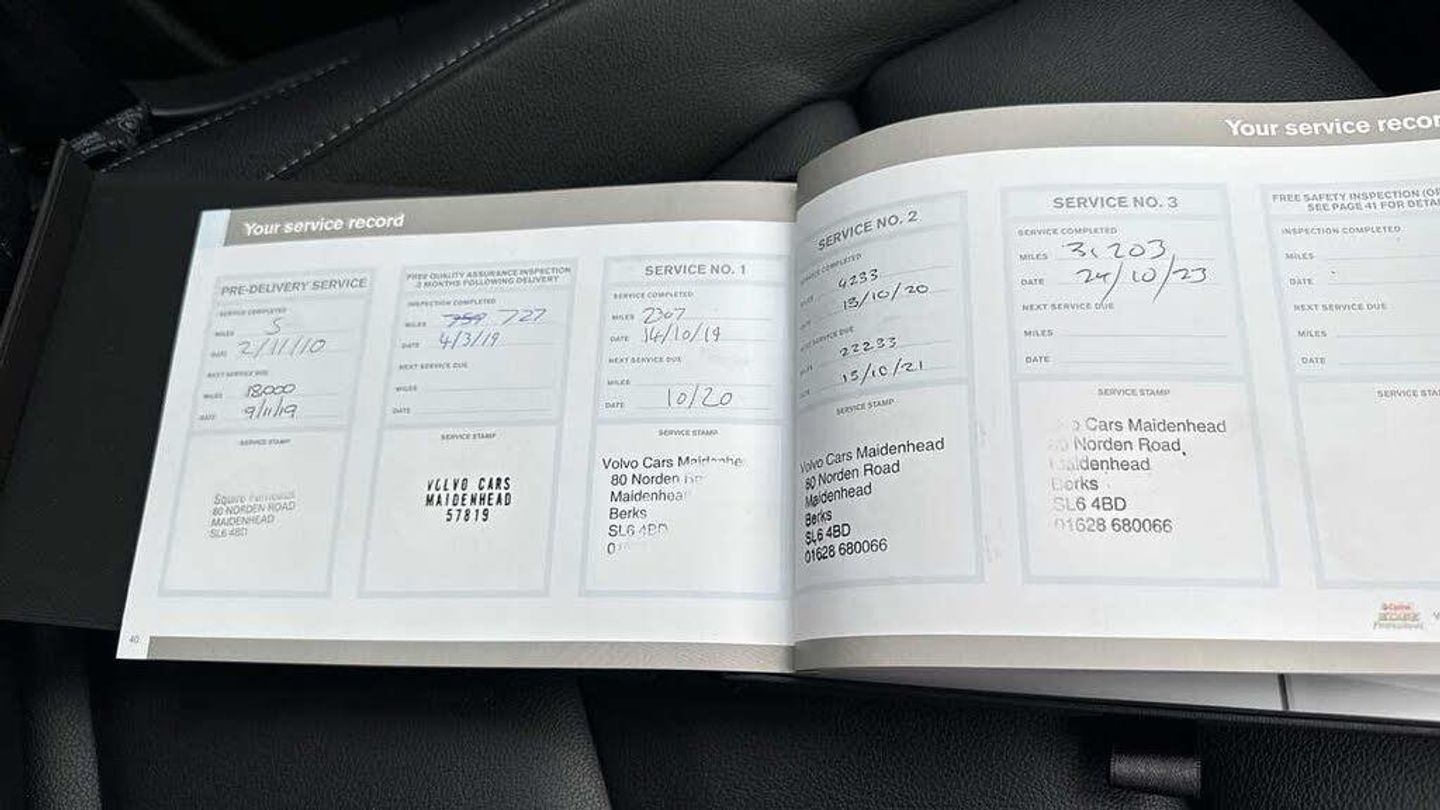 Your service record
PRE-DELIVERY SERVICE
SERVICE COMPLETED
MILES 5
DATE 2/11/10
NEXT SERVICE DUE
MILES 18000
DATE 9/11/19
SERVICE STAMP
Squire
80 NORDEN ROAD
MAIDENHEAD
SL6 4BD
FREE QUALITY ASSURANCE INSPECTION
MONTHS FOLLOWING DELIVERY
INSPECTION COMPLETED
MILES 727
DATE 4/3/19
NEXT SERVICE DUE
MILES
DATE
SERVICE STAMP
VOLVO CARS
MAIDENHEAD
57819
SERVICE NO. 1
SERVICE COMPLETED
MILES 2307
DATE 14/10/19
NEXT SERVICE DUE
MILES
DATE 10/20
SERVICE STAMP
Volvo Cars Maidenhe
80 Norden
Maidenhea
Berks
SL6 4BD
0
40
Your service recor
SERVICE NO. 2
SERVICE COMPLETED
4233
13/10/20
NEXT SERVICE DUE
22233
13/10/21
SERVICE STAMP
Volvo Cars Maidenhead
80 Norden Road
Maidenhead
Berks
SL6 4BD
01628 680066
SERVICE NO. 3
SERVICE COMPLETED
MILES 31203
DATE 24/10/23
NEXT SERVICE DUE
MILES
DATE
SERVICE STAMP
Cars Maidenhead
Norden Road,
Maidenhead
Berks
SL6 4BD
01628 680066
FREE SAFETY INSPECTION (OR
SEE PAGE 41 FOR DETA
INSPECTION COMPLETED
MILES
DATE
NEXT SERVICE DUE
MILES
DATE
SERVICE STA
Castrol
EDGE
Professional